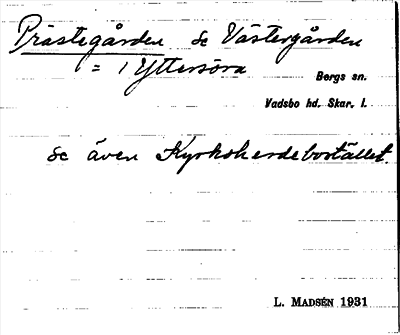 Prästegården se Västergården
= 1 Yttersöra
Bergs sn.
Vadsbo hd. Skar. l.
se även Kyrkoherdebostället.
L. MADSÉN 1931